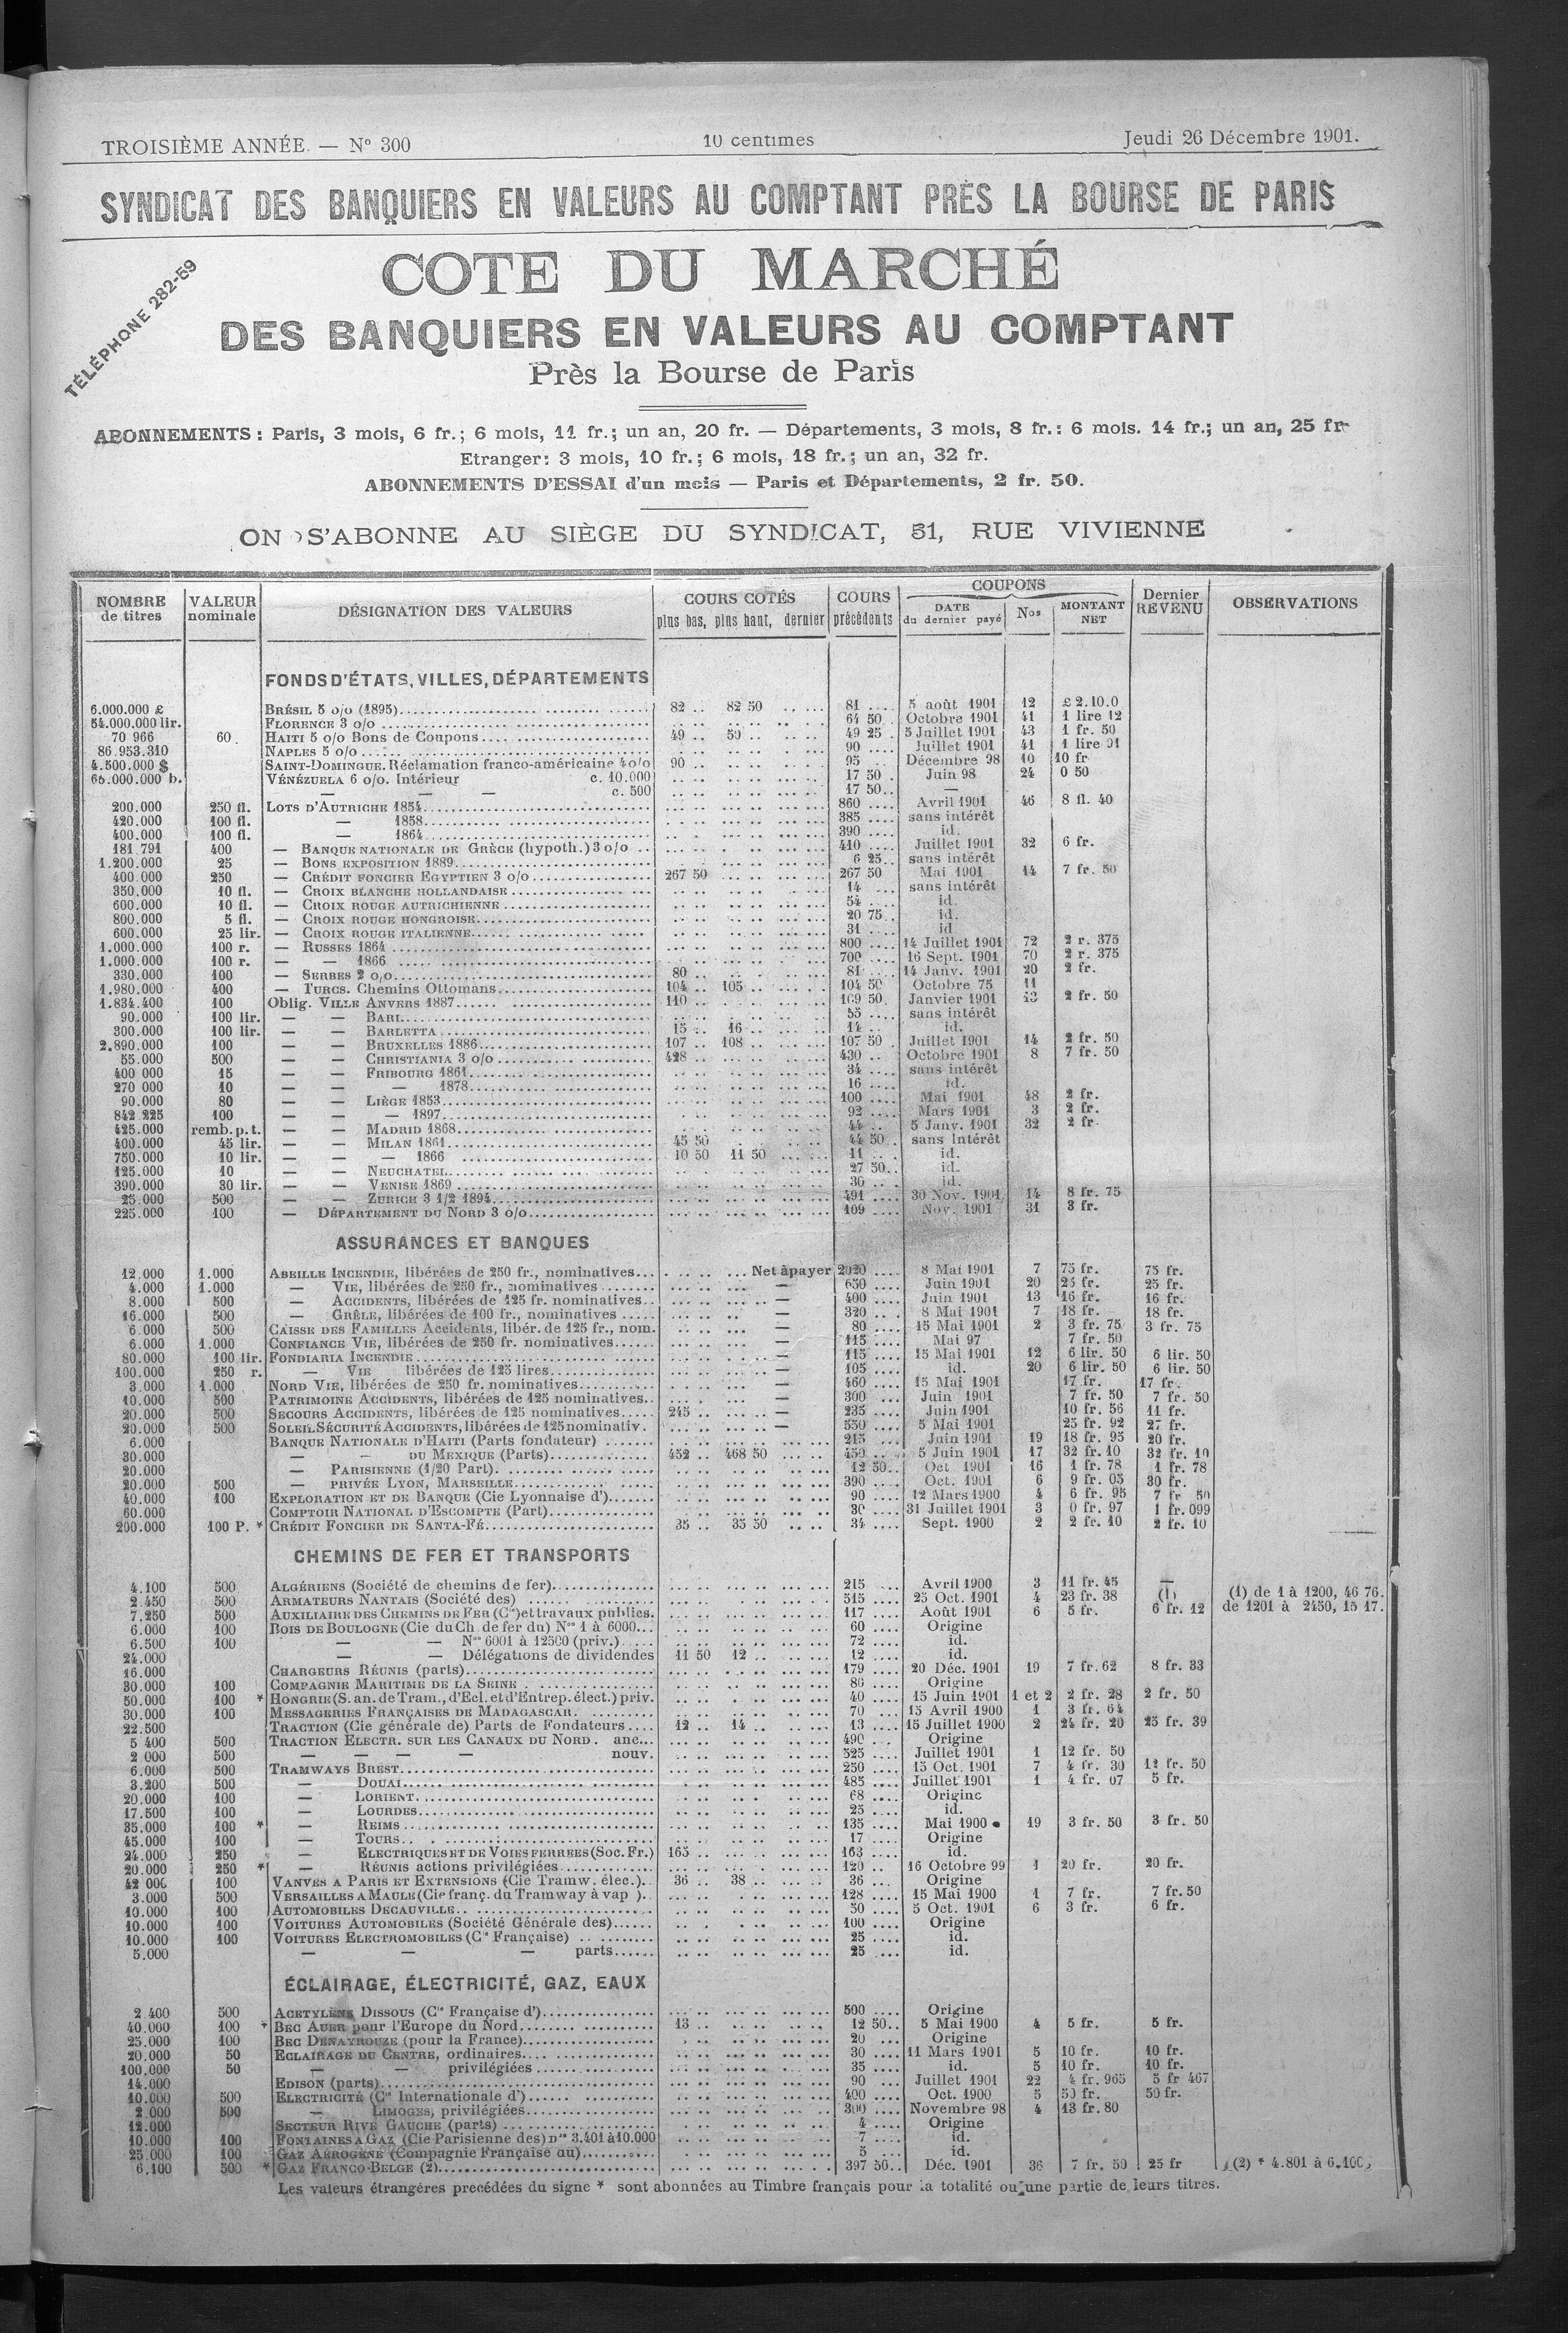 TROISIÈME ANNÉE. — N° 300 10 centimes Jeudi 26 Décembre 1901.
SYNDICAT DES BANQUIERS EN VALEURS AU COMPTANT PRÈS LA BOURSE DE PARIS
TÉLÉPHONE 282-59
COTE DU MARCHÉ
DES BANQUIERS EN VALEURS AU COMPTANT
Près la Bourse de Paris
ABONNEMENTS : Paris, 3 mois, 6 fr.; 6 mois, 11 fr.; un an, 20 fr. — Départements, 3 mois, 8 fr.: 6 mois. 14 fr.; un an, 25 fr
Etranger: 3 mois, 10 fr.; 6 mois, 18 fr.; un an, 32 fr.
ABONNEMENTS D'ESSAI d'un mois — Paris et Départements, 2 fr. 50.
ON S'ABONNE AU SIÈGE DU SYNDICAT, 31, RUE VIVIENNE
NOMBRE de titres VALEUR nominale DÉSIGNATION DES VALEURS COURS COTÉS plus bas, plus haut, dernier COURS précédents COUPONS DATE du dernier payé Nos MONTANT NET Dernier REVENU OBSERVATIONS
FONDS D'ÉTATS, VILLES, DÉPARTEMENTS
6.000.000 £ BRÉSIL 5 o/o (1895) 82 .. 82 50 81 .... 5 août 1901 12 £ 2.10.0
54.000.000 lir. FLORENCE 3 o/o 64 50 Octobre 1901 41 1 lire 12
70 966 60 HAITI 5 o/o Bons de Coupons 49 .. 50 .. 49 25 5 Juillet 1901 43 1 fr. 50
86.953.310 NAPLES 5 o/o 90 .... Juillet 1901 41 1 lire 91
4.500.000 $ SAINT-DOMINGUE. Réclamation franco-américaine 4 o/o 90 .. 95 .. Décembre 98 10 10 fr
65.000.000 b. VÉNÉZUELA 6 o/o. Intérieur c. 10.000 17 50 Juin 98 24 0 50
— — — c. 500 17 50 —
200.000 250 fl. LOTS D'AUTRICHE 1854 860 .... Avril 1901 46 8 fl. 40
420.000 100 fl. — 1858 385 .... sans intérêt
400.000 100 fl. — 1864 390 .... id.
181.791 400 — BANQUE NATIONALE DE GRÈCE (hypoth.) 3 o/o 410 .... Juillet 1901 32 6 fr.
1.200.000 25 — BONS EXPOSITION 1889 6 25 sans intérêt
400.000 250 — CRÉDIT FONCIER EGYPTIEN 3 o/o 267 50 267 50 Mai 1901 14 7 fr. 50
350.000 10 fl. — CROIX BLANCHE HOLLANDAISE 14 ... sans intérêt
600.000 10 fl. — CROIX ROUGE AUTRICHIENNE 54 .... id.
800.000 5 fl. — CROIX ROUGE HONGROISE 20 75 id.
600.000 25 lir. — CROIX ROUGE ITALIENNE 31 .... id
1.000.000 100 r. — RUSSES 1864 800 .... 14 Juillet 1901 72 2 r. 375
1.000.000 100 r. — — 1866 700 .... 16 Sept. 1901 70 2 r. 375
330.000 100 — SERBES 2 o/o 80 .. 81 .... 14 Janv. 1901 20 2 fr.
1.980.000 400 — TURCS. Chemins Ottomans 104 .. 105 .. 104 50 Octobre 75 11
1.834.400 100 Oblig. VILLE ANVERS 1887 110 .. 109 50 Janvier 1901 13 2 fr. 50
90.000 100 lir. — — BARI 55 .... sans intérêt
300.000 100 lir. — — BARLETTA 15 .. 16 .. 14 .. id.
2.890.000 100 — — BRUXELLES 1886 107 .. 108 .. 107 50 Juillet 1901 14 2 fr. 50
55.000 500 — — CHRISTIANIA 3 o/o 428 .. 430 .. Octobre 1901 8 7 fr. 50
400 000 15 — — FRIBOURG 1861 34 .... sans intérêt
270 000 10 — — — 1878 16 .... id.
90.000 80 — — LIÈGE 1853 100 .... Mai 1901 48 2 fr.
842 225 100 — — — 1897 92 .... Mars 1901 3 2 fr.
425.000 remb. p. t. — — MADRID 1868 44 .. 5 Janv. 1901 32 2 fr.
400.000 45 lir. — — MILAN 1861 45 50 44 50 sans Intérêt
750.000 10 lir. — — — 1866 10 50 11 50 11 .. id.
125.000 10 — — NEUCHATEL 27 50 id.
390.000 30 lir. — — VENISE 1869 30 .. id.
25.000 500 — — ZURICH 3 1/2 1894 491 .... 30 Nov. 1901 14 8 fr. 75
225.000 100 — DÉPARTEMENT DU NORD 3 o/o 109 .... Nov. 1901 31 3 fr.
ASSURANCES ET BANQUES
12.000 1.000 ABEILLE INCENDIE, libérées de 250 fr., nominatives Net à payer 2020 .... 8 Mai 1901 7 75 fr. 75 fr.
4.000 1.000 — VIE, libérées de 250 fr., nominatives — 650 .... Juin 1901 20 25 fr. 25 fr.
8.000 500 — ACCIDENTS, libérées de 125 fr. nominatives — 400 .... Juin 1901 13 16 fr. 16 fr.
16.000 500 — GRÊLE, libérées de 100 fr., nominatives — 320 .. 8 Mai 1901 7 18 fr. 18 fr.
6.000 500 CAISSE DES FAMILLES Accidents, libér. de 125 fr., nom. — 80 .... 15 Mai 1901 2 3 fr. 75 3 fr. 75
6.000 1.000 CONFIANCE VIE, libérées de 250 fr. nominatives — 115 .... Mai 97 7 fr. 50
80.000 100 lir. FONDIARIA INCENDIE — 115 .... 15 Mai 1901 12 6 lir. 50 6 lir. 50
100.000 250 r. — VIE libérées de 125 lires — 105 .... id. 20 6 lir. 50 6 lir. 50
3.000 1.000 NORD VIE, libérées de 250 fr. nominatives — 460 .... 15 Mai 1901 17 fr. 17 fr.
10.000 500 PATRIMOINE ACCIDENTS, libérées de 125 nominatives — 300 .... Juin 1901 7 fr. 50 7 fr. 50
20.000 500 SECOURS ACCIDENTS, libérées de 125 nominatives 245 .. — 235 .... Juin 1901 10 fr. 56 11 fr.
20.000 500 SOLEIL SÉCURITÉ ACCIDENTS, libérées de 125 nominativ. — 550 .... 5 Mai 1901 25 fr. 92 27 fr.
6.000 BANQUE NATIONALE D'HAITI (Parts fondateur) 215 .... Juin 1901 19 18 fr. 95 20 fr.
30.000 — — DU MEXIQUE (Parts) 452 .. 468 50 450 .. 5 Juin 1901 17 32 fr. 10 32 fr. 10
20.000 — PARISIENNE (1/20 Part) 12 50 Oct 1901 16 1 fr. 78 1 fr. 78
20.000 500 — PRIVÉE LYON, MARSEILLE 390 .... Oct. 1901 6 9 fr. 05 30 fr.
40.000 100 EXPLORATION ET DE BANQUE (Cie Lyonnaise d') 90 .... 12 Mars 1900 4 6 fr. 95 7 fr 50
60.000 COMPTOIR NATIONAL D'ESCOMPTE (Part) 30 .... 31 Juillet 1901 3 0 fr. 97 1 fr. 099
200.000 100 P. * CRÉDIT FONCIER DE SANTA-FÉ 35 .. 35 50 34 .... Sept. 1900 2 2 fr. 10 2 fr. 10
CHEMINS DE FER ET TRANSPORTS
4.100 500 ALGÉRIENS (Société de chemins de fer) 215 ... Avril 1900 3 11 fr. 45 —
2.450 500 ARMATEURS NANTAIS (Société des) 515 .... 25 Oct. 1901 4 23 fr. 38 (1) (1) de 1 à 1200, 46 76.
7.250 500 AUXILIAIRE DES CHEMINS DE FER (Cie) et travaux publics. 117 .... Août 1901 6 5 fr. 6 fr. 12 de 1201 à 2450, 15 17.
6.000 100 BOIS DE BOULOGNE (Cie du Ch. de fer du) Nos 1 à 6000 60 .... Origine
6.500 100 — — Nos 6001 à 12500 (priv.) 72 .... id.
24.000 — — Délégations de dividendes 11 50 12 .. 12 .... id.
16.000 CHARGEURS RÉUNIS (parts) 179 .... 20 Déc. 1901 19 7 fr. 62 8 fr. 33
30.000 100 COMPAGNIE MARITIME DE LA SEINE 80 .... Origine
50.000 100 * HONGRIE (S. an. de Tram., d'Ecl. et d'Entrep. élect.) priv. 40 .... 15 Juin 1901 1 et 2 2 fr. 28 2 fr. 50
30.000 100 MESSAGERIES FRANÇAISES DE MADAGASCAR 70 .... 15 Avril 1900 1 3 fr. 64
22.500 TRACTION (Cie générale de) Parts de Fondateurs 12 .. 14 .. 13 .... 15 Juillet 1900 2 24 fr. 20 25 fr. 39
5 400 500 TRACTION ELECTR. SUR LES CANAUX DU NORD. anc... 490 .. Origine
2 000 500 — — — — nouv. 525 .... Juillet 1901 1 12 fr. 50
6.000 500 TRAMWAYS BREST 250 .... 15 Oct. 1901 7 4 fr. 30 12 fr. 50
3.200 500 — DOUAI 485 .... Juillet 1901 1 4 fr. 07 5 fr.
20.000 100 — LORIENT 68 .... Origine
17.500 100 — LOURDES 25 .... id.
35.000 100 * — REIMS 135 .... Mai 1900 19 3 fr. 50 3 fr. 50
45.000 100 — TOURS 17 .... Origine
24.000 250 — ELECTRIQUES ET DE VOIES FERREES (Soc. Fr.) 165 .. 163 .... id.
20.000 250 * — RÉUNIS actions privilégiées 120 .. 16 Octobre 99 1 20 fr. 20 fr.
42 000 100 VANVES A PARIS ET EXTENSIONS (Cie Tramw. élec.) 36 .. 38 .. 36 ... Origine
3.000 500 VERSAILLES A MAULE (Cie franç. du Tramway à vap ) 128 .... 15 Mai 1900 1 7 fr. 7 fr. 50
10.000 100 AUTOMOBILES DECAUVILLE 50 .... 5 Oct. 1901 6 3 fr. 6 fr.
10.000 100 VOITURES AUTOMOBILES (Société Générale des) 100 .... Origine
10.000 100 VOITURES ELECTROMOBILES (Cie Française) 25 .... id.
5.000 — — — parts 25 .... id.
ÉCLAIRAGE, ÉLECTRICITÉ, GAZ, EAUX
2 400 500 ACETYLÈNE DISSOUS (Cie Française d') 500 .... Origine
40.000 100 * BEC AUER pour l'Europe du Nord 13 .. 12 50 5 Mai 1900 4 5 fr. 5 fr.
25.000 100 BEC DENAYROUZE (pour la France) 20 ... Origine
20.000 50 ECLAIRAGE DU CENTRE, ordinaires 30 .... 11 Mars 1901 5 10 fr. 10 fr.
100.000 50 — — privilégiées 35 .... id. 5 10 fr. 10 fr.
14.000 EDISON (parts) 90 ... Juillet 1901 22 4 fr. 965 5 fr 467
10.000 500 ELECTRICITÉ (Cie Internationale d') 400 .... Oct. 1900 5 50 fr. 50 fr.
2.000 500 — LIMOGES, privilégiées 300 .... Novembre 98 4 13 fr. 80
12.000 SECTEUR RIVE GAUCHE (parts) 4 .... Origine
10.000 100 FONTAINES A GAZ (Cie Parisienne des) nos 3.401 à 10.000 7 .... id.
25.000 100 GAZ AÉROGÈNE (Compagnie Française du) 5 ... id.
6.100 500 * GAZ FRANCO-BELGE (2) 397 50 Déc. 1901 36 7 fr. 50 25 fr (2) * 4.801 à 6.100
Les valeurs étrangères precédées du signe * sont abonnées au Timbre français pour la totalité ou une partie de leurs titres.